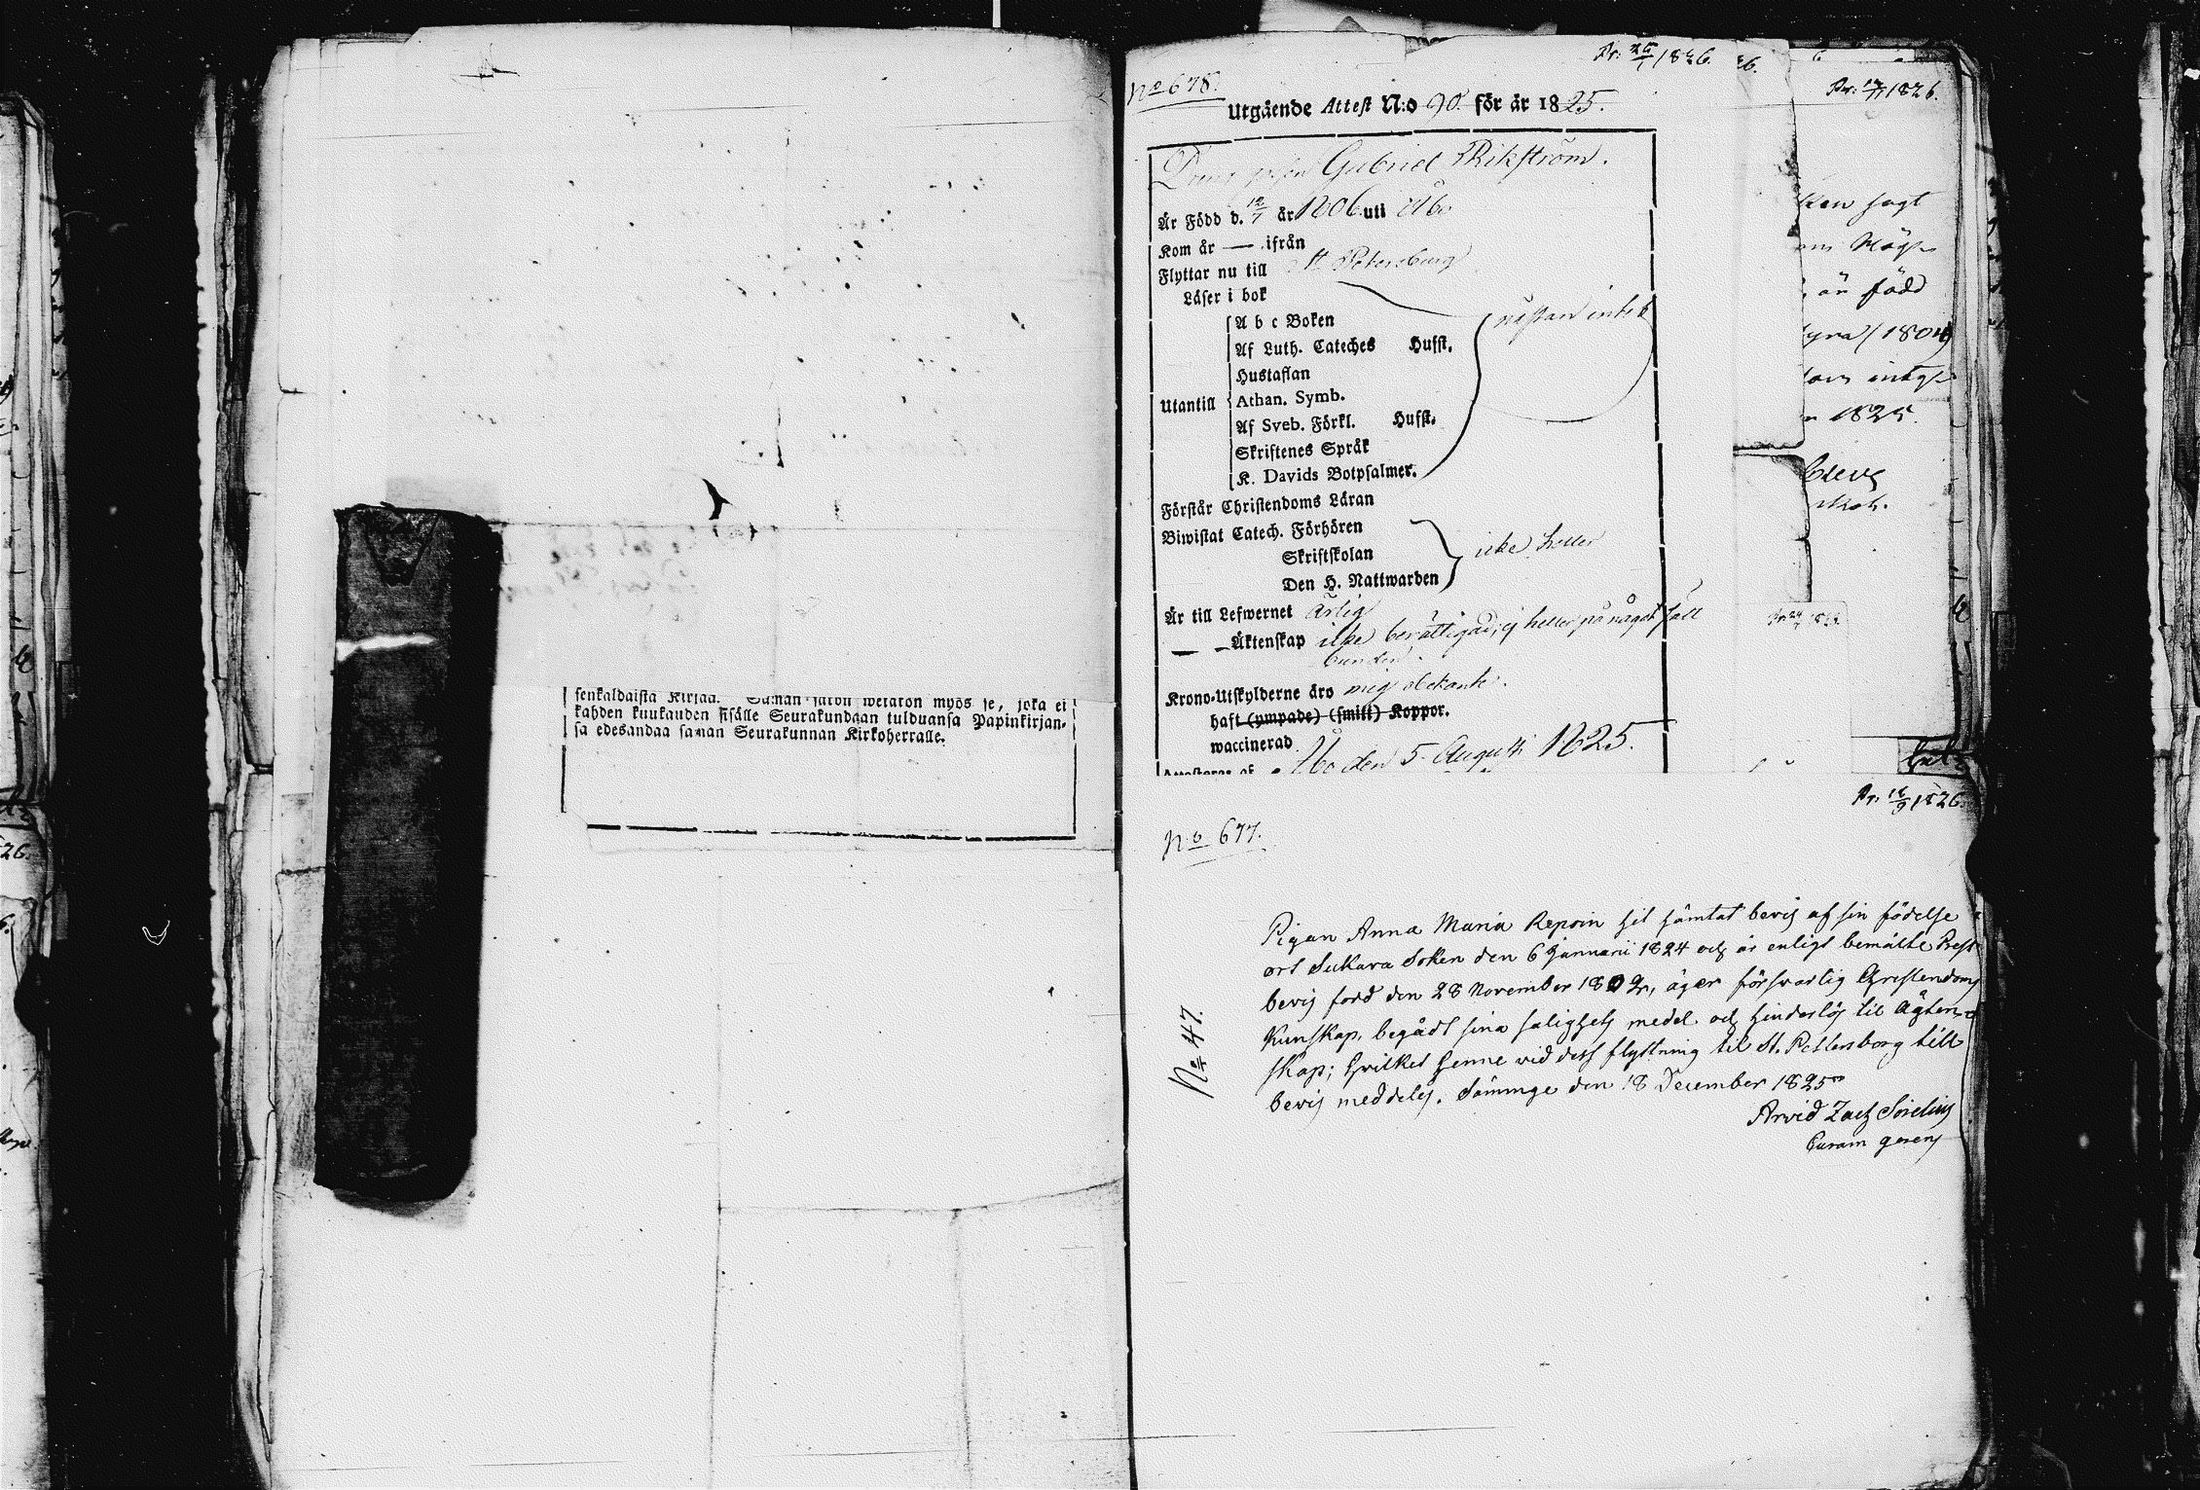 senkaldaista Kirjaa. Saman jaton wetäton myös se, joka ei
kahden kuukauden sisälle Seurakundaan tulduansa Papinkirjan-
sa edesandaa saman Seurakunnan Kirkoherralle.
No 678.
Pr: 1826.
Utgående Attest N:o 90. för år 1825.
Gabriel Rikström.
Är Född d. 12/7 år 1806 uti Åbo
Kom år — ifrån
Flyttar nu till St Petersburg
Läser i bok
A b c Boken nästan intet
Af Luth. Cateches Husst.
Hustaflan
Utantill Athan. Symb.
Af Sveb. Förkl. Husst.
Skriftenes Språk
K. Davids Botpsalmer.
Förstår Christendoms Läran
Biwistat Catech. Förhören
Skriftskolan icke heller
Den H. Nattwarden
Är till Lefwernet ärlig
— —Äktenskap icke berättigad, ej heller på något fall
bunden.
Krono-Utskylderne äro mig obekante.
haft (ympade) (smitt) Koppor.
waccinerad
Åbo den 5 Augusti 1825.
Pr: 1826.
ken sagt
är född
1804
1825.
Pr: 18/9 1826.
No 677.
No 47.
Pigan Anna Maria Repoin hit hämtat bevis af sin födelse
ort Sulkava Soken den 6 Januarii 1824 och är enligt bemälte Prest
bevis född den 28 November 1802, äger försvarlig Christendoms
Kunskap, begådt sina salighets medel och hinderlös til Ägten-
skap; hvilket henne vid dess flyttning til St. Pettersborg till
bevis meddeles. Säminge den 18 December 1825
Arvid Zach Sirelius
Curam gerens